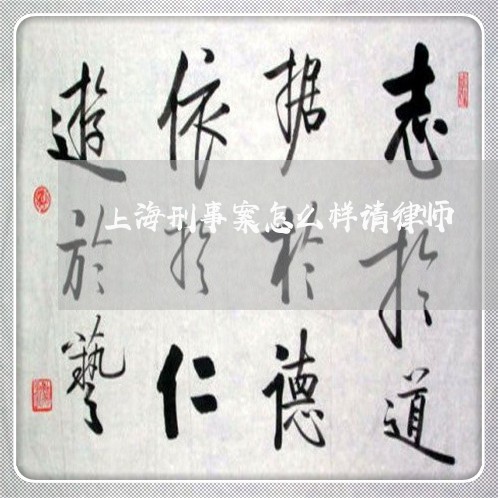 志於道
据於德
依於仁
遊於藝
上海刑事案怎么样请律师